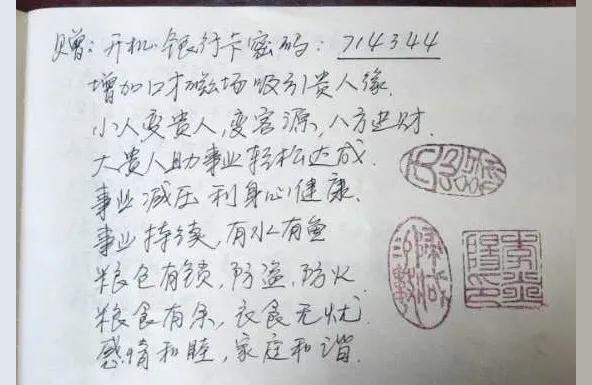 赠：开机 银行卡密码：714344
增加口才磁场吸引贵人缘.
小人变贵人,变客源,八方进财.
大贵人助事业轻松达成.
事业减压 利身心健康、
事业持续,有水有鱼
粮仓有锁,防盗,防火
粮食有余,衣食无忧.
感情和睦,家庭和谐.